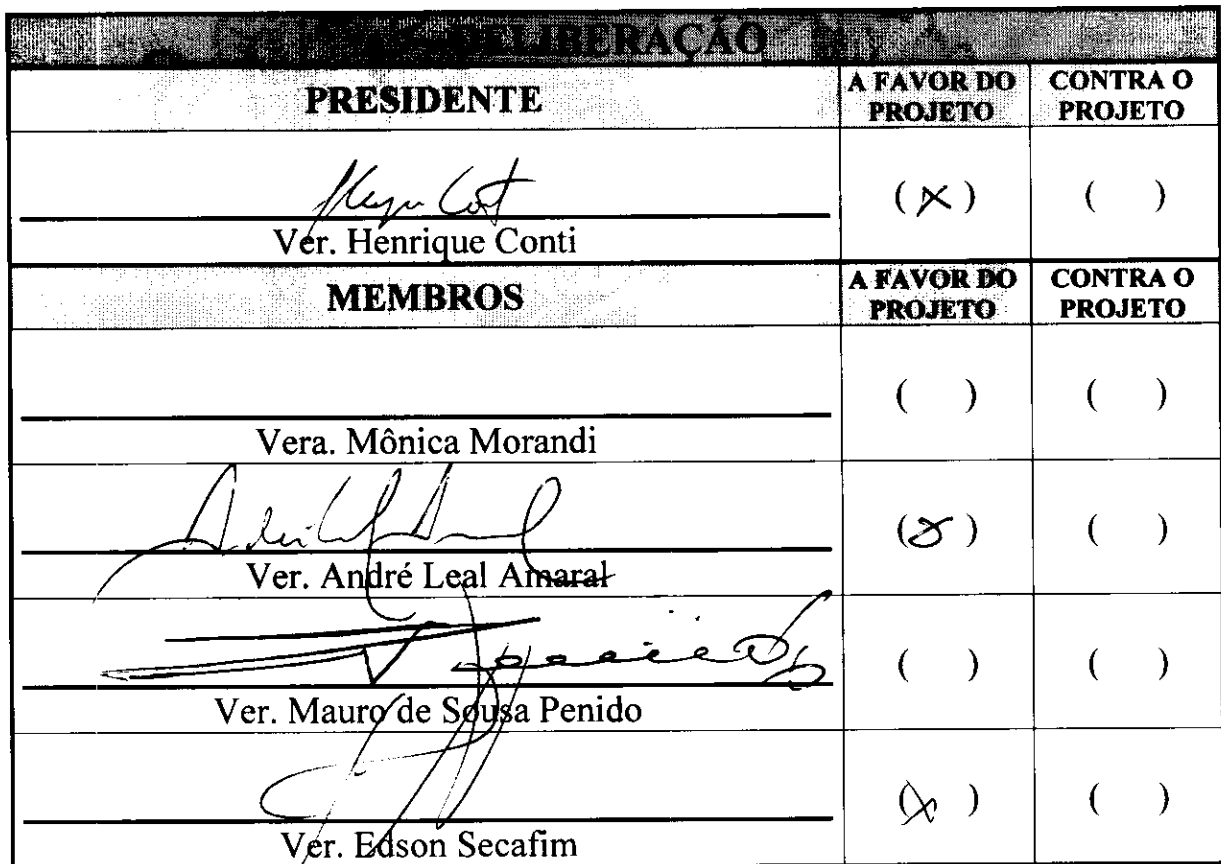 DELIBERAÇÃO
PRESIDENTE
A FAVOR DO PROJETO
CONTRA O PROJETO
( X ) ( )
Ver. Henrique Conti
MEMBROS
A FAVOR DO PROJETO
CONTRA O PROJETO
( ) ( )
Vera. Mônica Morandi
( X ) ( )
Ver. André Leal Amaral
( ) ( )
Ver. Mauro de Sousa Penido
( X ) ( )
Ver. Edson Secafim